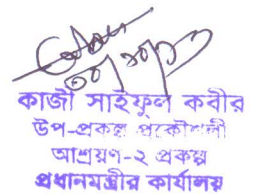 কাজী সাইফুল কবীর
উপ-প্রকল্প প্রকৌশলী
আশ্রয়ণ-২ প্রকল্প
প্রধানমন্ত্রীর কার্যালয়